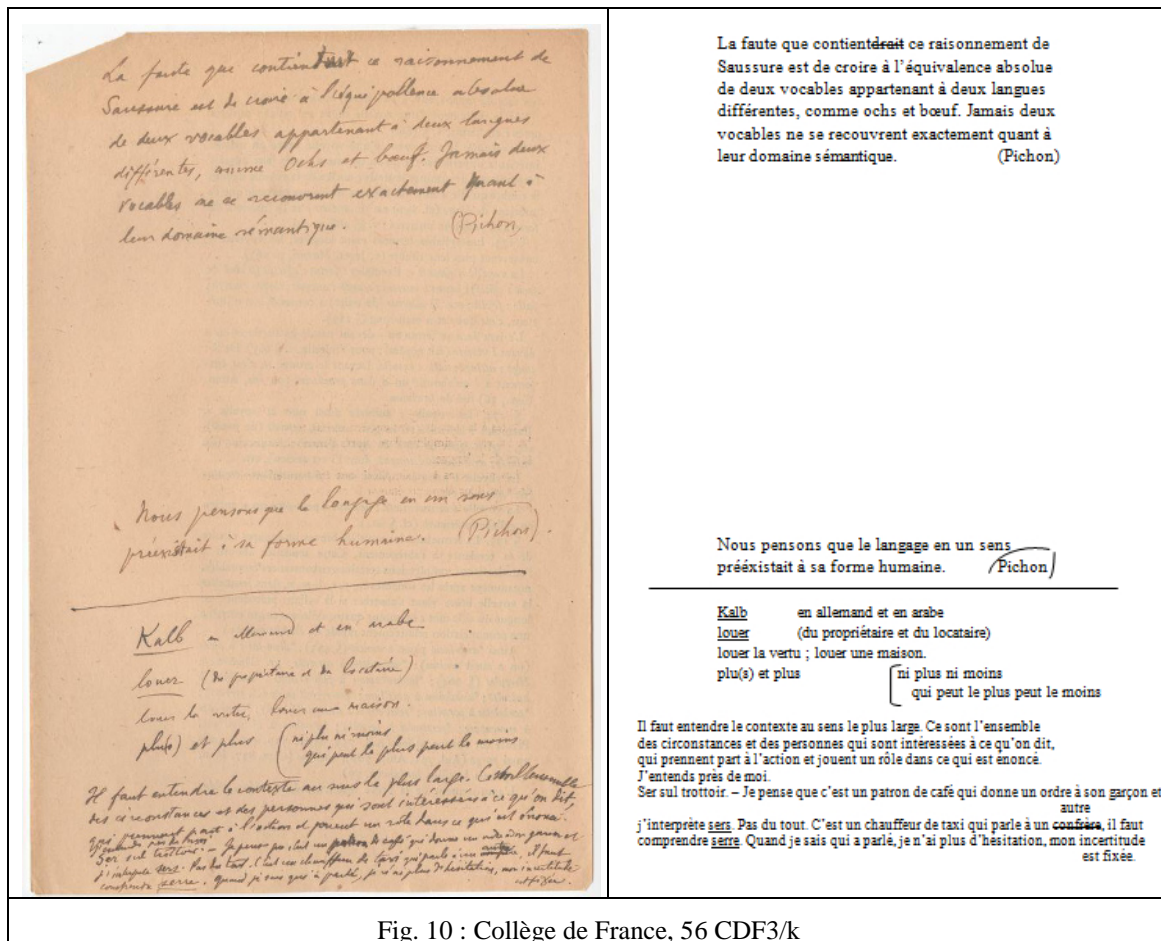 La faute que contient ce raisonnement de
Saussure est de croire à l'équipollence absolue
de deux vocables appartenant à deux langues
différentes, comme Ochs et bœuf. Jamais deux
vocables ne se recouvrent exactement quant à
leur domaine sémantique. (Pichon)
Nous pensons que le langage en un sens
préexistait à sa forme humaine. (Pichon).
Kalb en allemand et en arabe
louer (du propriétaire et du locataire)
louer la vertu, louer une maison.
plu(s) et plus ni plus ni moins
qui peut le plus peut le moins
Il faut entendre le contexte au sens le plus large. Ce sont l'ensemble
des circonstances et des personnes qui sont intéressées à ce qu'on dit,
qui prennent part à l'action et jouent un rôle dans ce qui est énoncé.
J'entends près de moi
Ser sul trottoir. – Je pense que c'est un patron de café qui donne un ordre à son garçon et
autre
j'interprète sers. Pas du tout. C'est un chauffeur de taxi qui parle à un confrère, il faut
comprendre serre. Quand je sais qui a parlé, je n'ai plus d'hésitation, mon incertitude
est fixée.
La faute que contientdrait ce raisonnement de
Saussure est de croire à l'équivalence absolue
de deux vocables appartenant à deux langues
différentes, comme ochs et bœuf. Jamais deux
vocables ne se recouvrent exactement quant à
leur domaine sémantique. (Pichon)
Nous pensons que le langage en un sens
prééxistait à sa forme humaine. (Pichon)
Kalb en allemand et en arabe
louer (du propriétaire et du locataire)
louer la vertu ; louer une maison.
plu(s) et plus ni plus ni moins
qui peut le plus peut le moins
Il faut entendre le contexte au sens le plus large. Ce sont l'ensemble
des circonstances et des personnes qui sont intéressées à ce qu'on dit,
qui prennent part à l'action et jouent un rôle dans ce qui est énoncé.
J'entends près de moi.
Ser sul trottoir. – Je pense que c'est un patron de café qui donne un ordre à son garçon et
autre
j'interprète sers. Pas du tout. C'est un chauffeur de taxi qui parle à un confrère, il faut
comprendre serre. Quand je sais qui a parlé, je n'ai plus d'hésitation, mon incertitude
est fixée.
Fig. 10 : Collège de France, 56 CDF3/k